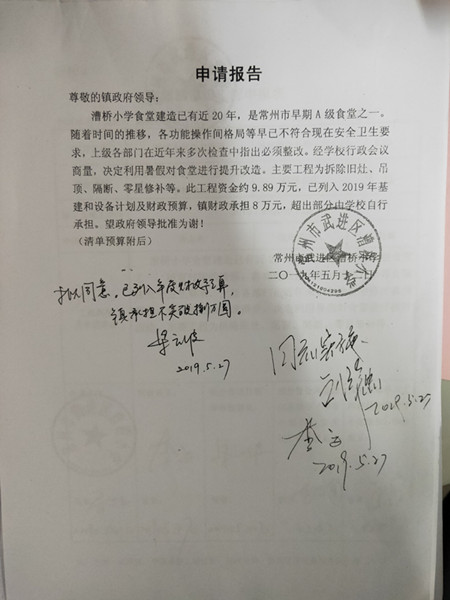 申请报告
尊敬的镇政府领导：
漕桥小学食堂建造已有近20年，是常州市早期A级食堂之一。
随着时间的推移，各功能操作间格局等早已不符合现在安全卫生要
求，上级各部门在近年来多次检查中指出必须整改。经学校行政会议
商量，决定利用暑假对食堂进行提升改造。主要工程为拆除旧灶、吊
顶、隔断、零星修补等。此工程资金约9.89万元，已列入2019年基
建和设备计划及财政预算，镇财政承担8万元，超出部分由学校自行
承担。望政府领导批准为谢！
（清单预算附后）
常州市武进区漕桥小学
二〇一九年五月
常州市武进区漕桥小学
同意，已列入年度财政预算，
镇承担不突破捌万圆。
2019.5.27
同意实施
2019.5.27
2019.5.27